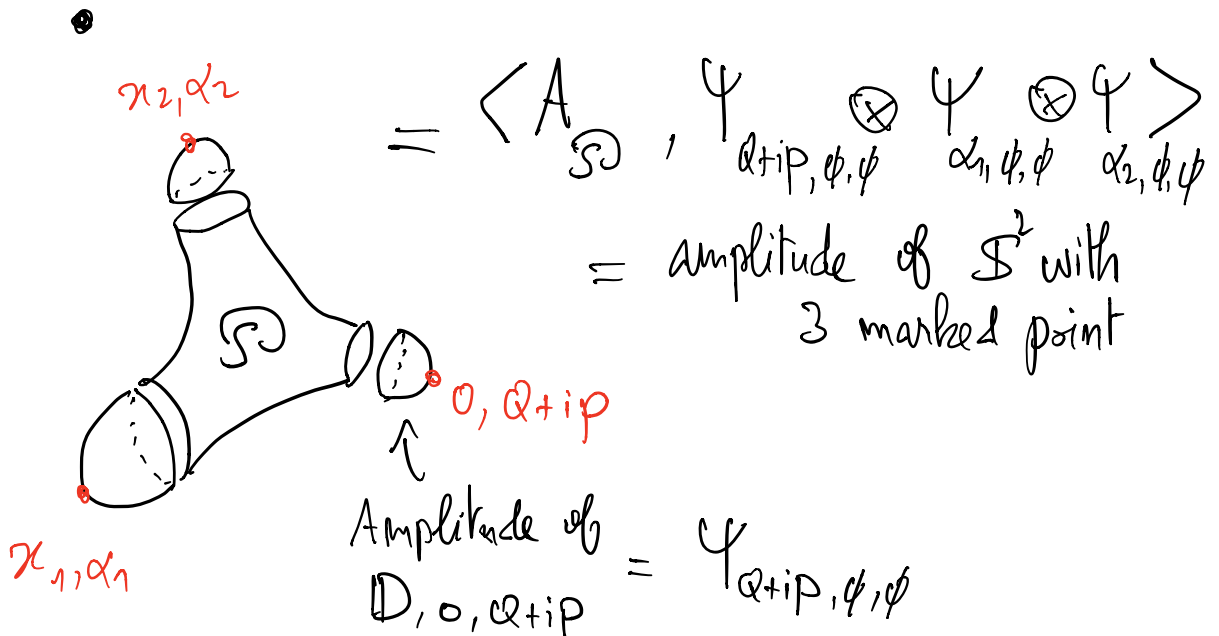 x₂, α₂
= < A_𝒮 , Ψ_{Q+ip, ϕ, ϕ} ⊗ Ψ_{α₁, ϕ, ϕ} ⊗ Ψ_{α₂, ϕ, ϕ} >
= amplitude of 𝕊² with
3 marked point
𝒮
0, Q+ip
x₁, α₁
Amplitude of
𝔻, 0, Q+ip = Ψ_{Q+ip, ϕ, ϕ}